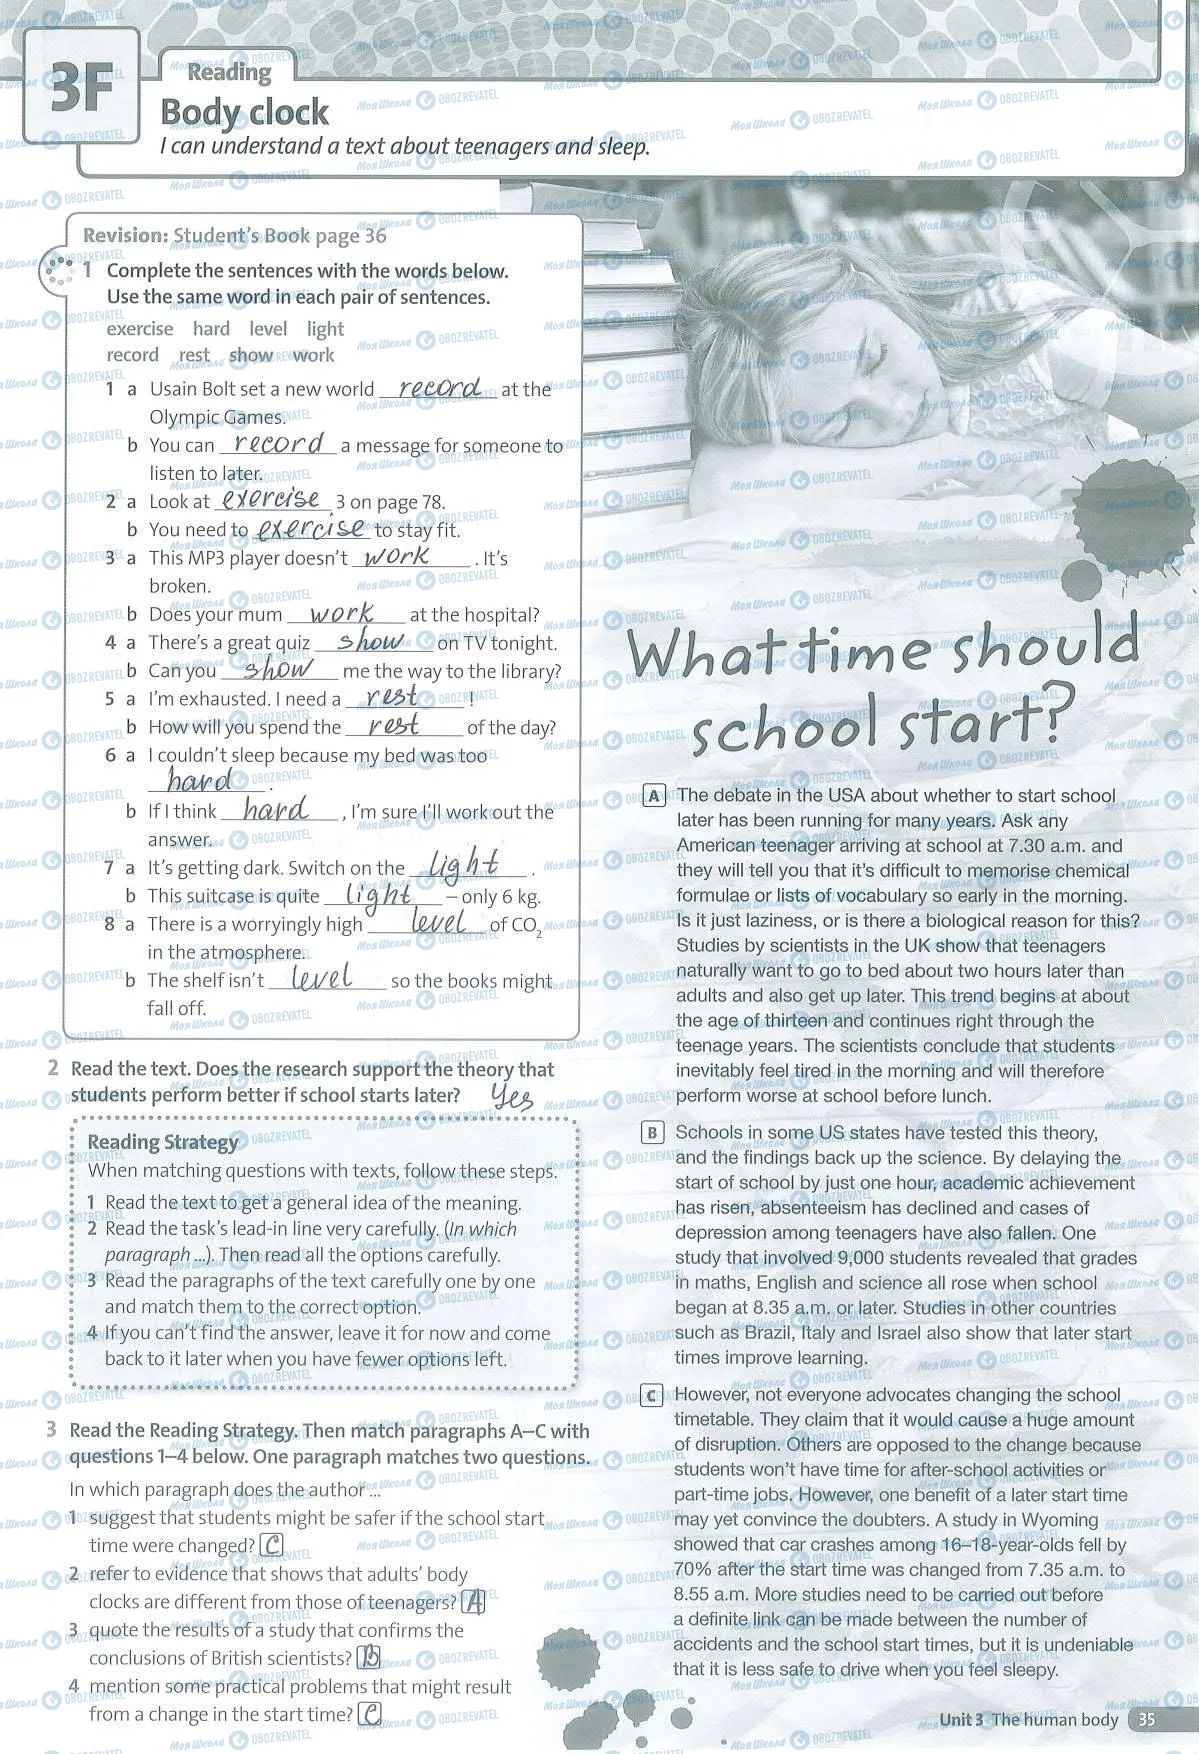 3F
Reading
Body clock
I can understand a text about teenagers and sleep.
Revision: Student's Book page 36
1 Complete the sentences with the words below.
Use the same word in each pair of sentences.
exercise hard level light
record rest show work
1 a Usain Bolt set a new world record at the
Olympic Games.
b You can record a message for someone to
listen to later.
2 a Look at exercise 3 on page 78.
b You need to exercise to stay fit.
3 a This MP3 player doesn't work . It's
broken.
b Does your mum work at the hospital?
4 a There's a great quiz show on TV tonight.
b Can you show me the way to the library?
5 a I'm exhausted. I need a rest !
b How will you spend the rest of the day?
6 a I couldn't sleep because my bed was too
hard .
b If I think hard , I'm sure I'll work out the
answer.
7 a It's getting dark. Switch on the light .
b This suitcase is quite light – only 6 kg.
8 a There is a worryingly high level of CO2
in the atmosphere.
b The shelf isn't level so the books might
fall off.
2 Read the text. Does the research support the theory that
students perform better if school starts later? Yes
Reading Strategy
When matching questions with texts, follow these steps.
1 Read the text to get a general idea of the meaning.
2 Read the task's lead-in line very carefully. (In which
paragraph ...). Then read all the options carefully.
3 Read the paragraphs of the text carefully one by one
and match them to the correct option.
4 If you can't find the answer, leave it for now and come
back to it later when you have fewer options left.
3 Read the Reading Strategy. Then match paragraphs A–C with
questions 1–4 below. One paragraph matches two questions.
In which paragraph does the author ...
1 suggest that students might be safer if the school start
time were changed? C
2 refer to evidence that shows that adults' body
clocks are different from those of teenagers? A
3 quote the results of a study that confirms the
conclusions of British scientists? B
4 mention some practical problems that might result
from a change in the start time? C
What time should
school start?
A The debate in the USA about whether to start school
later has been running for many years. Ask any
American teenager arriving at school at 7.30 a.m. and
they will tell you that it's difficult to memorise chemical
formulae or lists of vocabulary so early in the morning.
Is it just laziness, or is there a biological reason for this?
Studies by scientists in the UK show that teenagers
naturally want to go to bed about two hours later than
adults and also get up later. This trend begins at about
the age of thirteen and continues right through the
teenage years. The scientists conclude that students
inevitably feel tired in the morning and will therefore
perform worse at school before lunch.
B Schools in some US states have tested this theory,
and the findings back up the science. By delaying the
start of school by just one hour, academic achievement
has risen, absenteeism has declined and cases of
depression among teenagers have also fallen. One
study that involved 9,000 students revealed that grades
in maths, English and science all rose when school
began at 8.35 a.m. or later. Studies in other countries
such as Brazil, Italy and Israel also show that later start
times improve learning.
C However, not everyone advocates changing the school
timetable. They claim that it would cause a huge amount
of disruption. Others are opposed to the change because
students won't have time for after-school activities or
part-time jobs. However, one benefit of a later start time
may yet convince the doubters. A study in Wyoming
showed that car crashes among 16–18-year-olds fell by
70% after the start time was changed from 7.35 a.m. to
8.55 a.m. More studies need to be carried out before
a definite link can be made between the number of
accidents and the school start times, but it is undeniable
that it is less safe to drive when you feel sleepy.
Unit 3 The human body 35
Моя Школа OBOZREVATEL